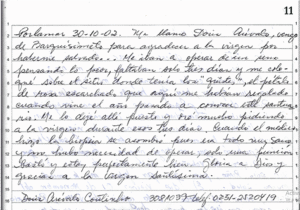 11
Porlamar 30-10-02. Me llamo Doris Quiroz, vengo
de Barquisimeto para agradecer a la virgen por
haberme salvado. Me iban a operar de un seno
pensando lo peor, faltaban solo tres días y me colo-
qué sobre el seno donde tenía los "quistes", el pétalo
de rosa escarchado que aquí me habían regalado
cuando vine el año pasado a conocer este santua-
rio. Me lo dejé allí puesto y oré mucho pidiendo
a la virgen durante esos tres días. Cuando el médico
hizo la biopsia se asombró pues era todo muy sano
y no hubo necesidad de operar, solo una punción
bastó y estoy perfectamente bien. Gloria a Dios y
gracias a la Virgen Santísima.
Doris Telf 0251-2520419